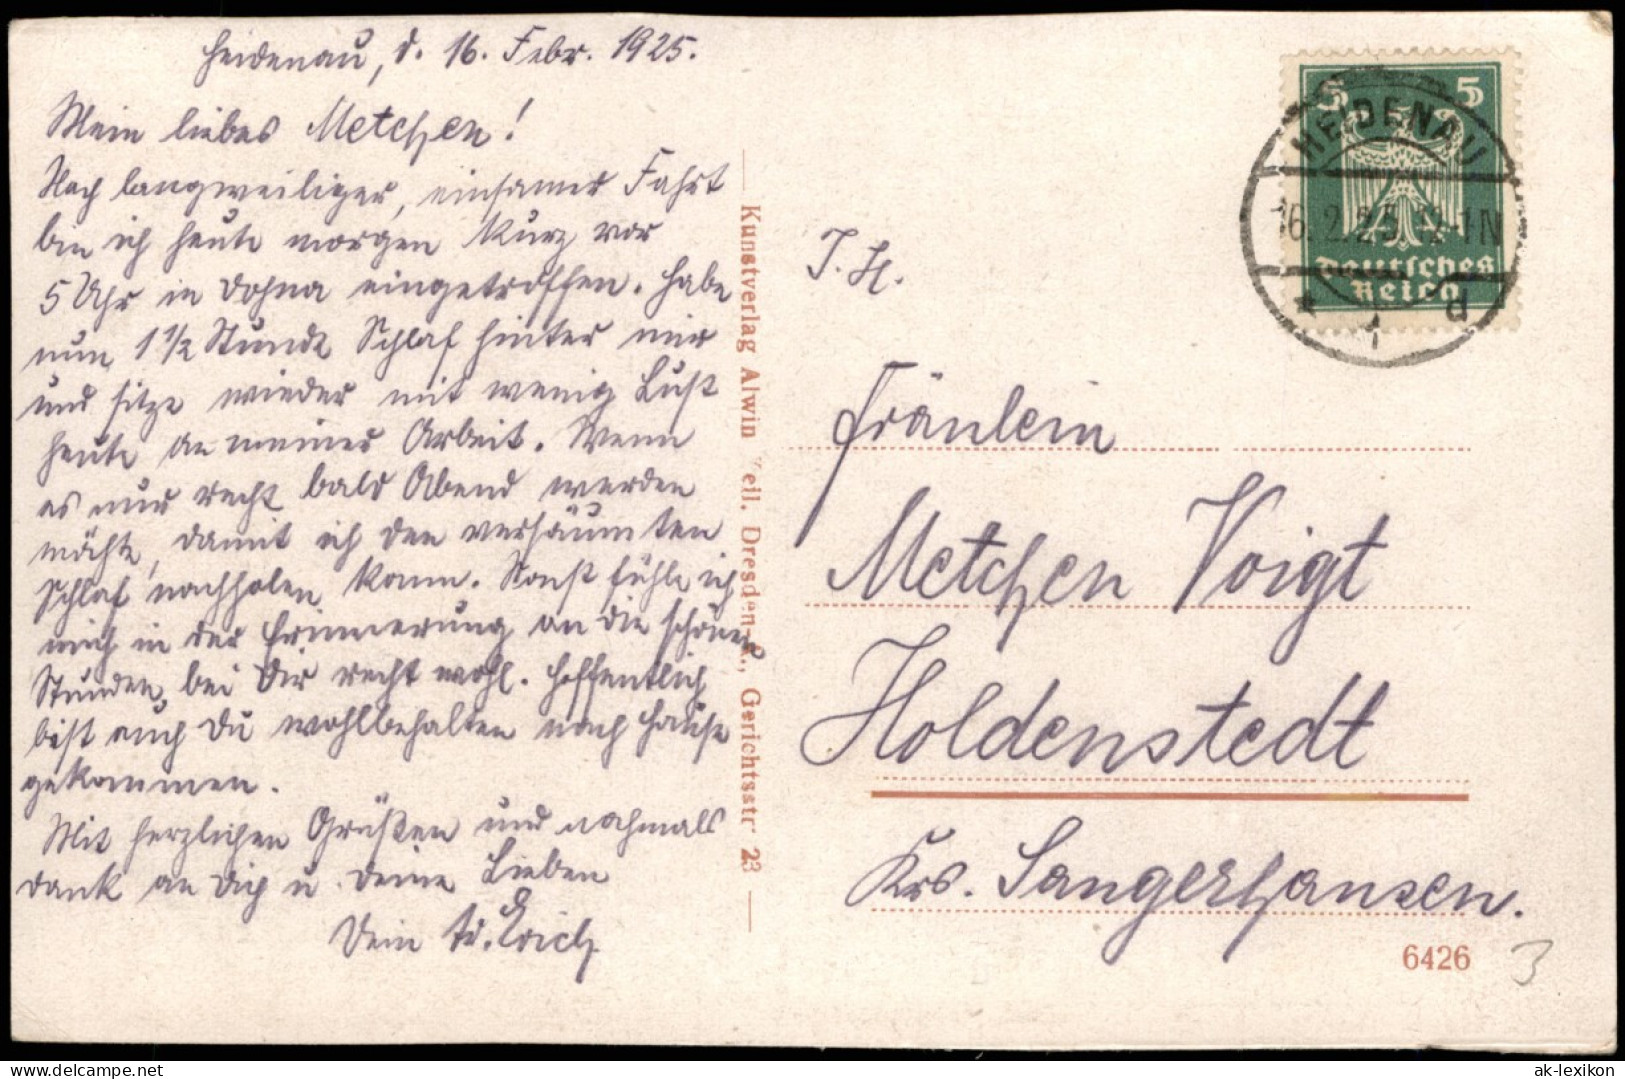 Heidenau, d. 16. Febr. 1925.
Mein liebes Metchen!
Nach langweiliger, einsamer Fahrt
bin ich heute morgen kurz vor
5 Uhr in Dohna eingetroffen. Habe
nun 1 1/2 Stunde Schlaf hinter mir
und sitze wieder mit wenig Lust
heute an meiner Arbeit. Wenn
es nur recht bald Abend werden
möchte, damit ich den versäumten
Schlaf nachholen kann. Sonst fühle ich
mich in der Erinnerung an die schönen
Stunden bei Dir recht wohl. Hoffentlich
bist auch Du wohlbehalten nach Hause
gekommen.
Mit herzlichen Grüßen und nochmals
Dank an Dich u. Deine Lieben
Dein Erich
Kunstverlag Alwin Keil, Dresden-A., Gerichtsstr 23
5 5
Deutsches
Reich
HEIDENAU
16.2.25.12-1N
* 1 d
Fräulein
Metchen Voigt
Holdenstedt
Krs. Sangerhausen.
6426
3
www.delcampe.net
ak-lexikon